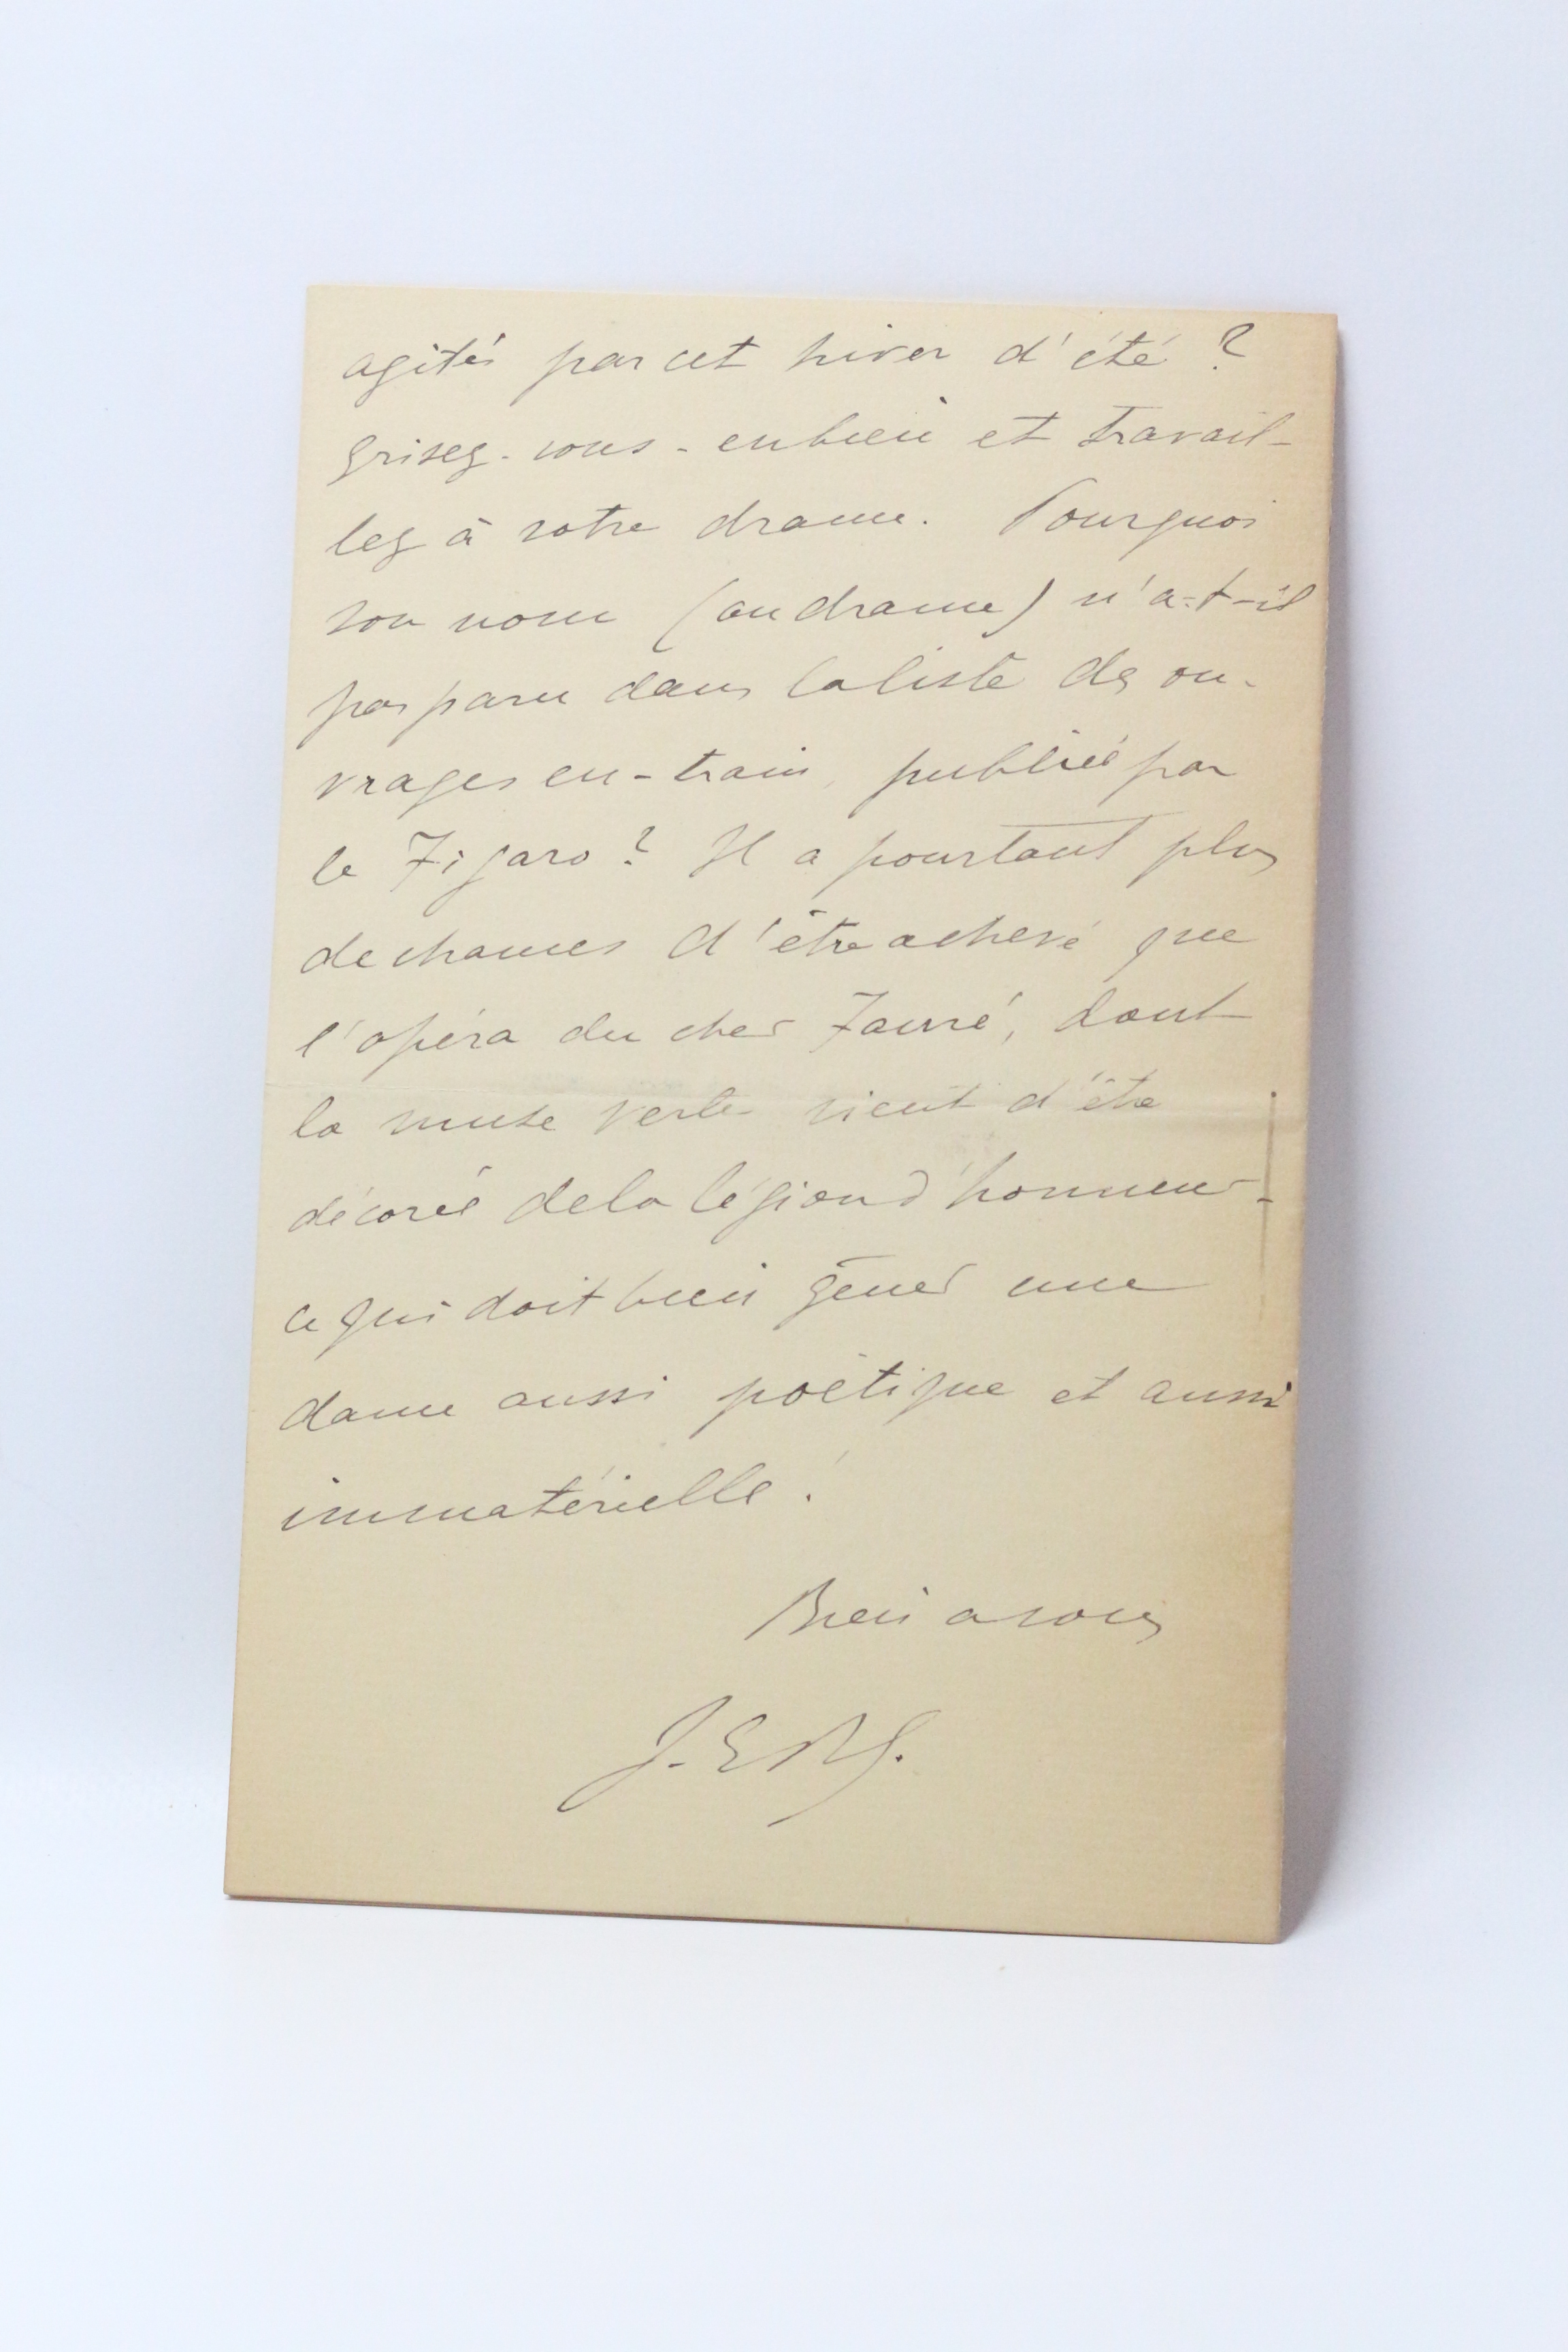 agités par cet hiver d'été ?
grisez-vous-en bien et travail-
lez à votre drame. Pourquoi
son nom (au drame) n'a-t-il
pas paru dans la liste des ou-
vrages en-train, publiée par
le Figaro ? Il a pourtant plus
de chances d'être achevé que
l'opéra du cher Fauré, dont
la muse verte vient d'être
décorée de la légion d'honneur-
ce qui doit bien gêner une
dame aussi poëtique et aussi
immatérielle !
Bien a vous
J. E. Bl.